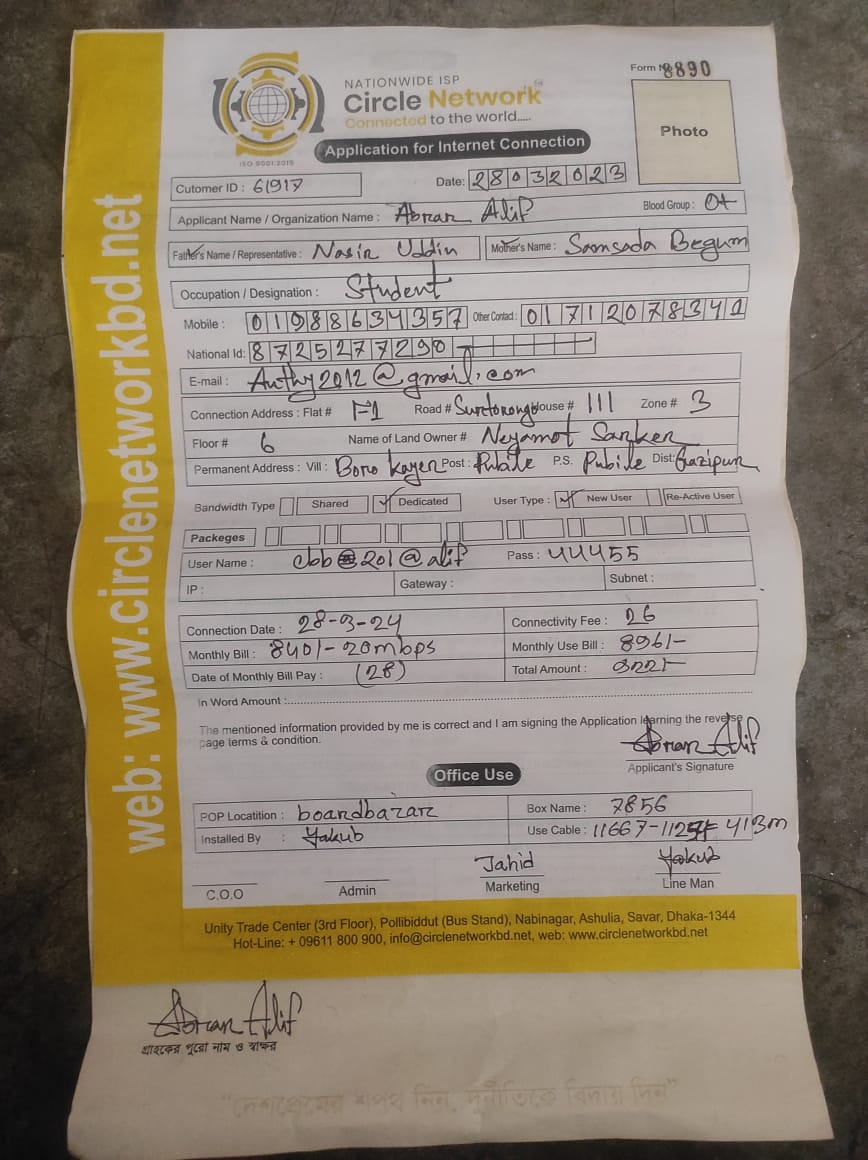 NATIONWIDE ISP
Circle Network
Connected to the world.....
ISO 9001:2015
Form No 8890
Photo
Application for Internet Connection
Cutomer ID : 61917
Date: 28032023
Applicant Name / Organization Name : Abrar Alif Blood Group : O+
Father's Name / Representative : Nasir Uddin Mother's Name : Samsada Begum
Occupation / Designation : Student
Mobile : 01988634357 Other Contact : 01712078341
National Id: 8725277290
E-mail : Authy2012@gmail.com
Connection Address : Flat # F1 Road # House # 111 Zone # 3
Floor # 6 Name of Land Owner # Neyamot Sarker
Permanent Address : Vill : Boro Kayer Post : Pubile P.S. Pubile Dist: Gazipur
Bandwidth Type Shared Dedicated User Type : New User Re-Active User
Packeges
User Name : 201@alif Pass : 44455
IP : Gateway : Subnet :
Connection Date : 28-3-24 Connectivity Fee : 26
Monthly Bill : 840/- 20mbps Monthly Use Bill : 896/-
Date of Monthly Bill Pay : (28) Total Amount :
In Word Amount :
The mentioned information provided by me is correct and I am signing the Application learning the reverse
page terms & condition.
Abrar Alif
Applicant's Signature
Office Use
POP Locatition : boardbazar Box Name : 7856
Installed By : Yakub Use Cable : 11667- 413m
Jahid Yakub
C.O.O Admin Marketing Line Man
Unity Trade Center (3rd Floor), Pollibiddut (Bus Stand), Nabinagar, Ashulia, Savar, Dhaka-1344
Hot-Line: + 09611 800 900, info@circlenetworkbd.net, web: www.circlenetworkbd.net
web: www.circlenetworkbd.net
Abrar Alif
গ্রাহকের পুরো নাম ও স্বাক্ষর
“দেশপ্রেমের শপথ নিন, দুর্নীতিকে বিদায় দিন”